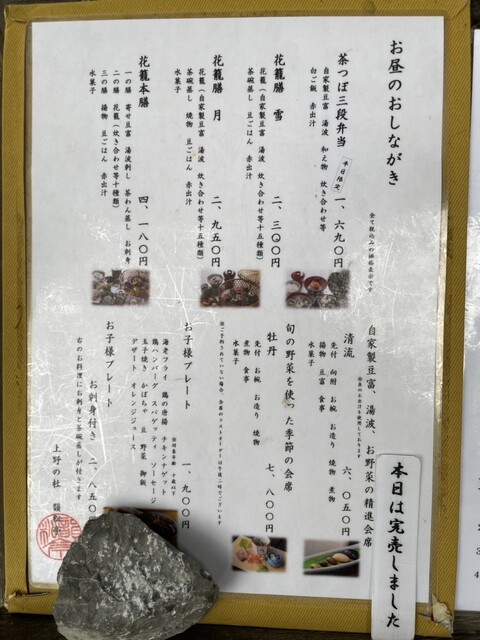 お昼のおしながき
全て税込みの価格表示です
茶つぼ三段弁当
平日限定
一、六九〇円
自家製豆富 湯波 和え物 炊き合わせ等
白ご飯 赤出汁
花籠膳 雪
二、三〇〇円
花籠(自家製豆富 湯波 炊き合わせ等十五種類)
茶碗蒸し 豆ごはん 赤出汁
花籠膳 月
二、九五〇円
花籠(自家製豆富 湯波 炊き合わせ等十五種類)
茶碗蒸し 焼物 豆ごはん 赤出汁
水菓子
花籠本膳
四、一八〇円
一の膳 寄せ豆富 湯波刺し 茶わん蒸し お刺身
二の膳 花籠(炊き合わせ等十種類)
三の膳 揚物 豆ごはん 赤出汁
水菓子
自家製豆富、湯波、お野菜の精進会席
清流
六、〇五〇円
先付 向附 お椀 お造り 焼物 煮物
揚物 豆富 食事
水菓子
旬の野菜を使った季節の会席
牡丹
七、八〇〇円
先付 お椀 お造り 焼物
煮物 食事
水菓子
お子様プレート
一、九〇〇円
海老フライ 鶏の唐揚 チキンナゲット
鶏ハンバーグ スパゲッティ ソーセージ
玉子焼き かぼちゃ 豆 野菜 御飯
デザート オレンジジュース
お子様プレート
お刺身付き 二、八五〇
右のお料理にお刺身と茶碗蒸しが付きます
上野の杜
本日は完売しました